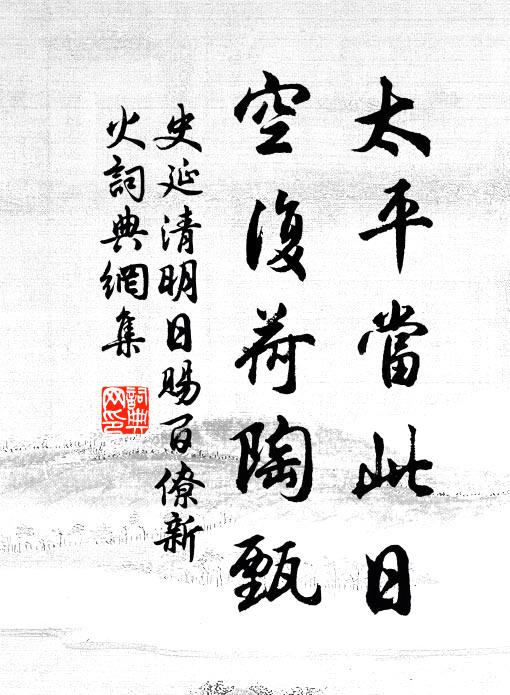 太平當此日
空復荷陶甄
史延清明日賜百僚新
火詞典網集
詞典
网印